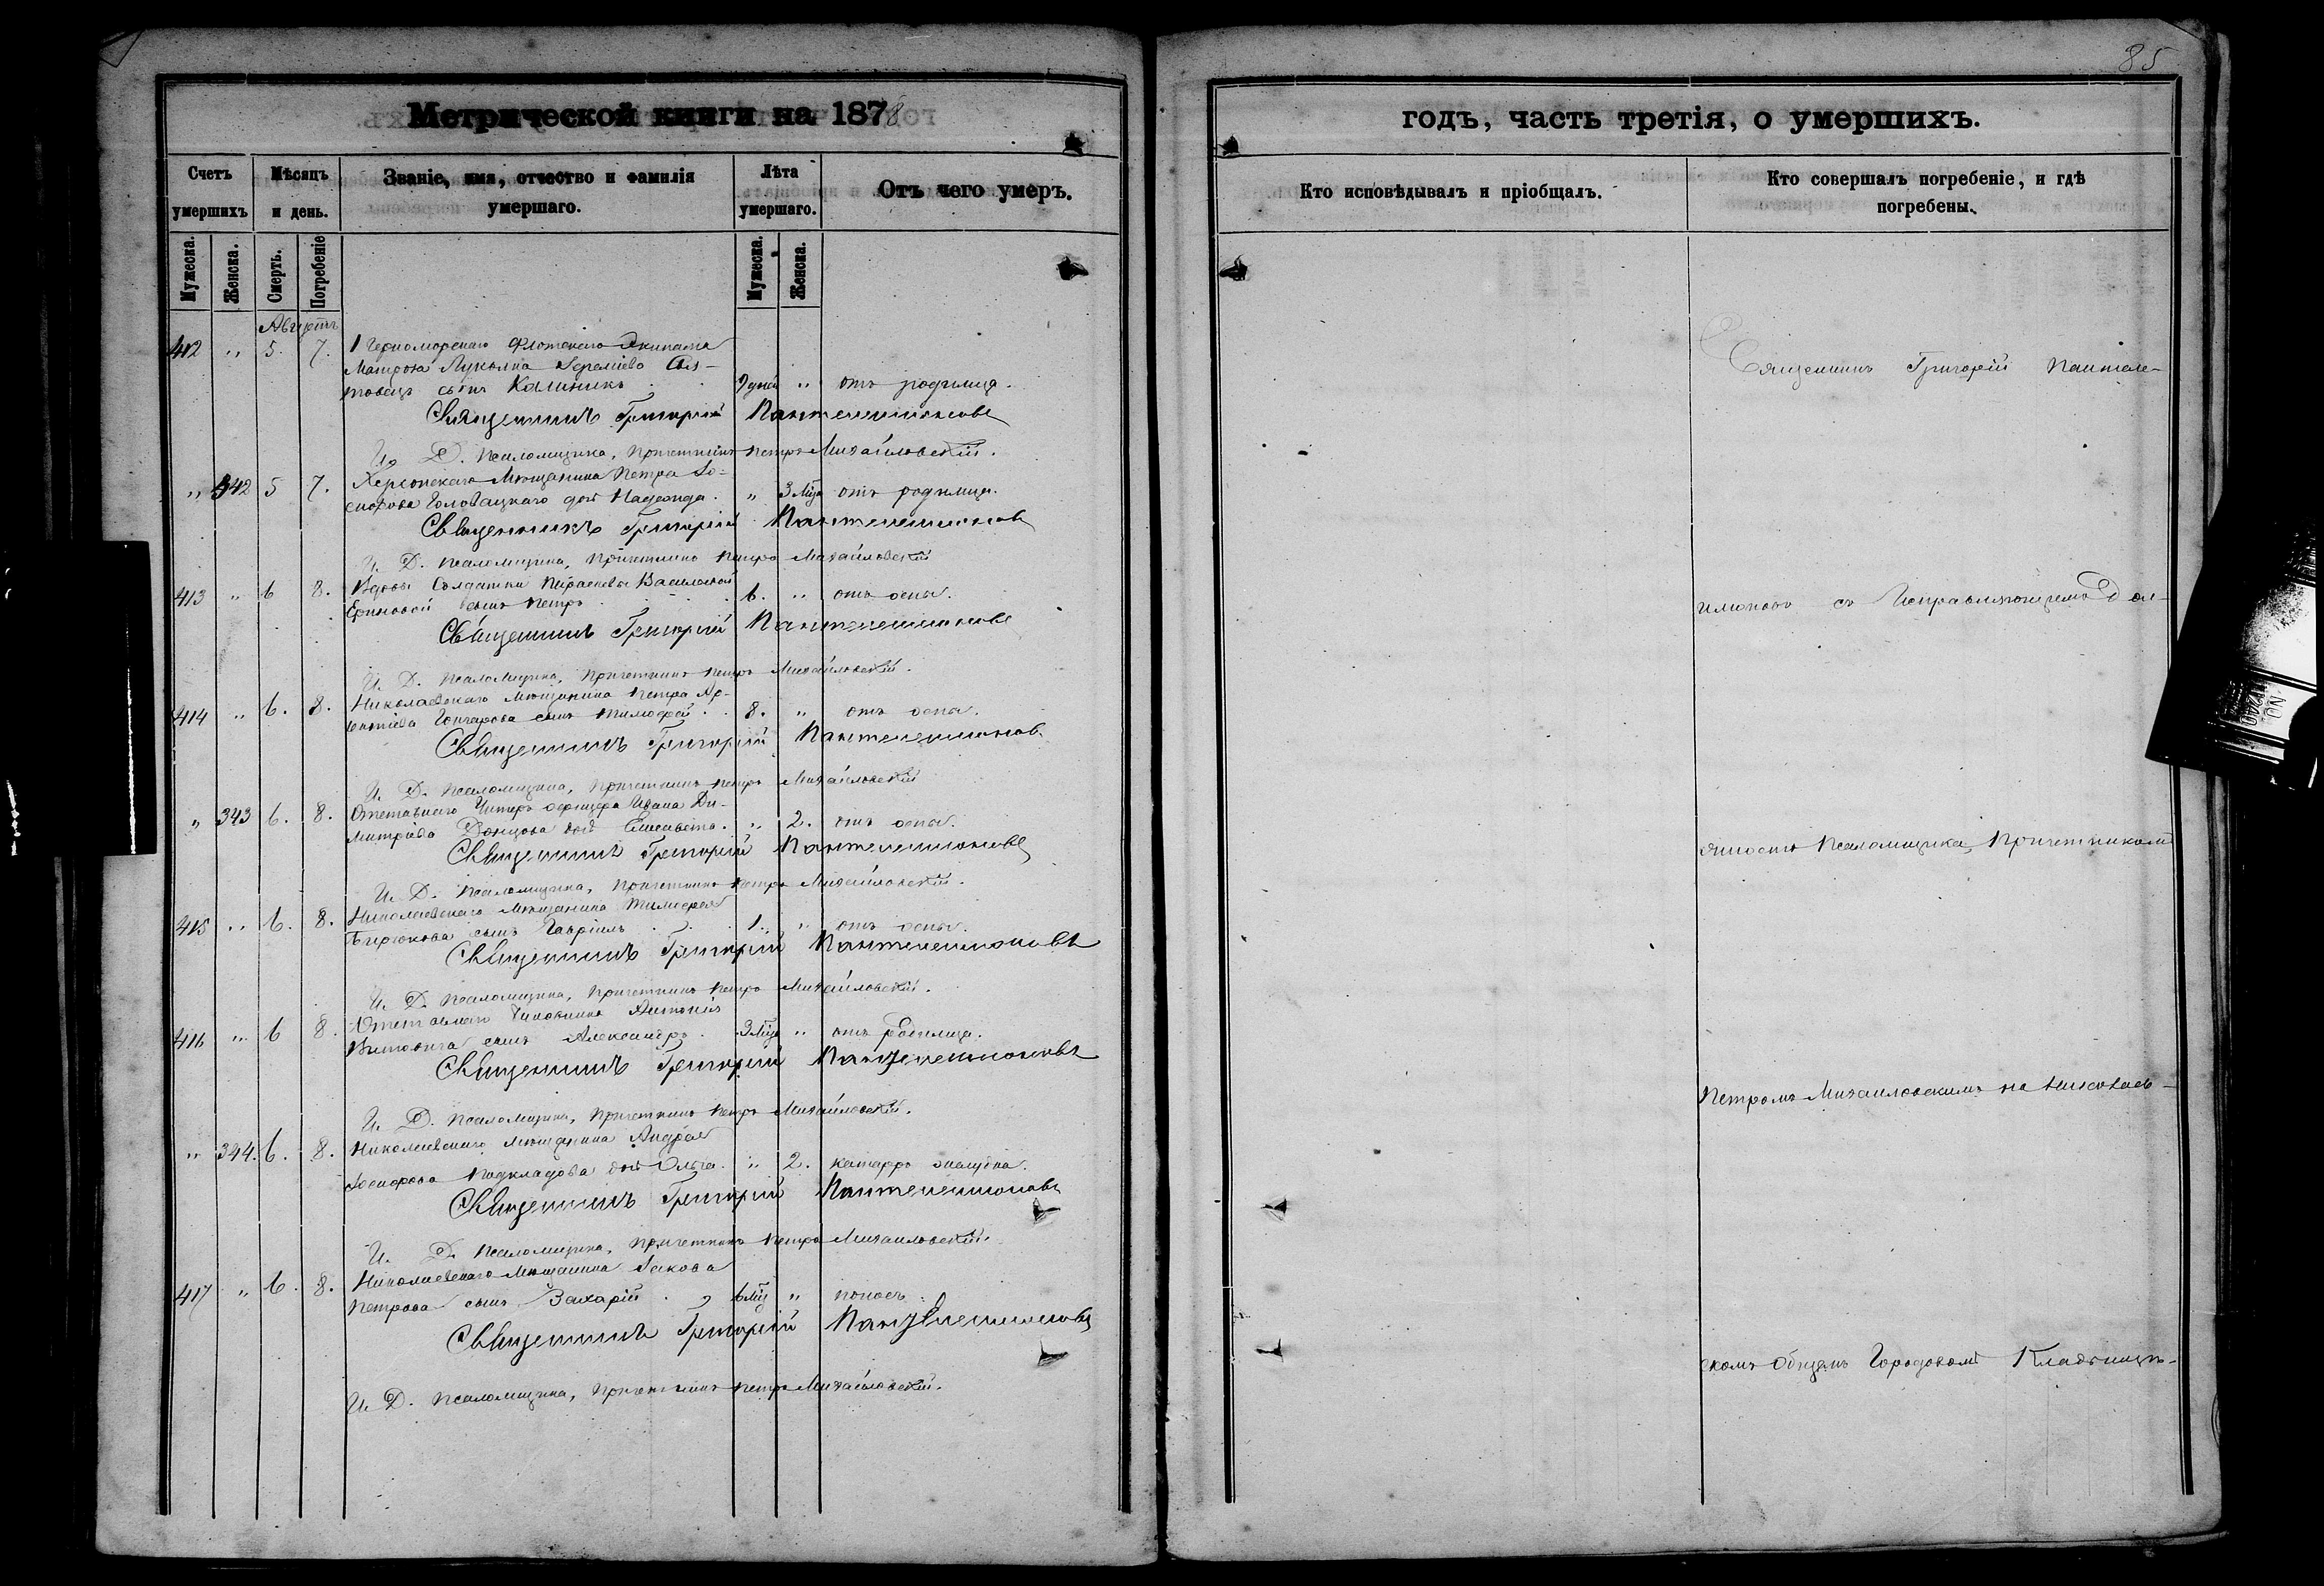 85
Метрической книги на 1878
годъ, часть третія, о умершихъ.
Счетъ умершихъ
Мѣсяцъ и день.
Званіе, имя, отчество и фамилія умершаго.
Лѣта умершаго.
Отъ чего умеръ.
Кто исповѣдывалъ и пріобщалъ.
Кто совершалъ погребеніе, и гдѣ погребены.
Мужеска. Женска. Смерть. Погребеніе Мужеска. Женска.
Августъ
412 " 5. 7. 1 Черноморскаго Флотскаго Экипажа
Матроса Лукьяна
сынъ Калиникъ 9 дней " отъ родимца.
Священникъ Григорій Пантелеимоновъ
И. Д. Псаломщика, Причетникъ Петръ Михайловскій.
" 342 5 7. Херсонскаго Мѣщанина Петра
Головацкаго дочь Надежда. " 3 мѣс. отъ родимца.
Священникъ Григорій Пантелеимоновъ
И. Д. Псаломщика, Причетникъ Петръ Михайловскій
413 " 6 8. Вдовы Солдатки Параскевы Васильевой
сынъ Петръ 6. " отъ оспы.
Священникъ Григорій Пантелеимоновъ
И. Д. Псаломщика, Причетникъ Петръ Михайловскій.
414 " 6. 8. Николаевскаго Мѣщанина Петра
Гончарова сынъ Тимофей 8. " отъ оспы.
Священникъ Григорій Пантелеимоновъ
И. Д. Псаломщика, Причетникъ Петръ Михайловскій
" 343 6. 8. Отставнаго Унтеръ офицера Ивана Ди-
митріева Донцова дочь Елисавета. " 2. отъ оспы.
Священникъ Григорій Пантелеимоновъ
И. Д. Псаломщика, Причетникъ Петръ Михайловскій.
415 " 6. 8. Николаевскаго Мѣщанина Тимофея
Бирюкова сынъ Гавріилъ 1. " отъ оспы.
Священникъ Григорій Пантелеимоновъ
И. Д. Псаломщика, Причетникъ Петръ Михайловскій.
416 " 6 8. Отставнаго Чиновника Антонія
сынъ Александръ 3 мѣс. " отъ родимца.
Священникъ Григорій Пантелеимоновъ
И. Д. Псаломщика, Причетникъ Петръ Михайловскій.
" 344. 6. 8. Николаевскаго Мѣщанина Андрея
дочь Ольга. " 2. катарръ желудка.
Священникъ Григорій Пантелеимоновъ
И. Д. Псаломщика, Причетникъ Петръ Михайловскій.
417 " 6. 8. Николаевскаго Мѣщанина Іакова
Петрова сынъ Захарій 6 мѣс. " поносъ.
Священникъ Григорій Пантелеимоновъ
И. Д. Псаломщика, Причетникъ Петръ Михайловскій.
Священникъ Григорій Пантеле-
имоновъ съ Исправляющимъ Дол-
жность Псаломщика, Причетникомъ
Петромъ Михайловскимъ на Николаев-
скомъ Общемъ Городскомъ Кладбищѣ.